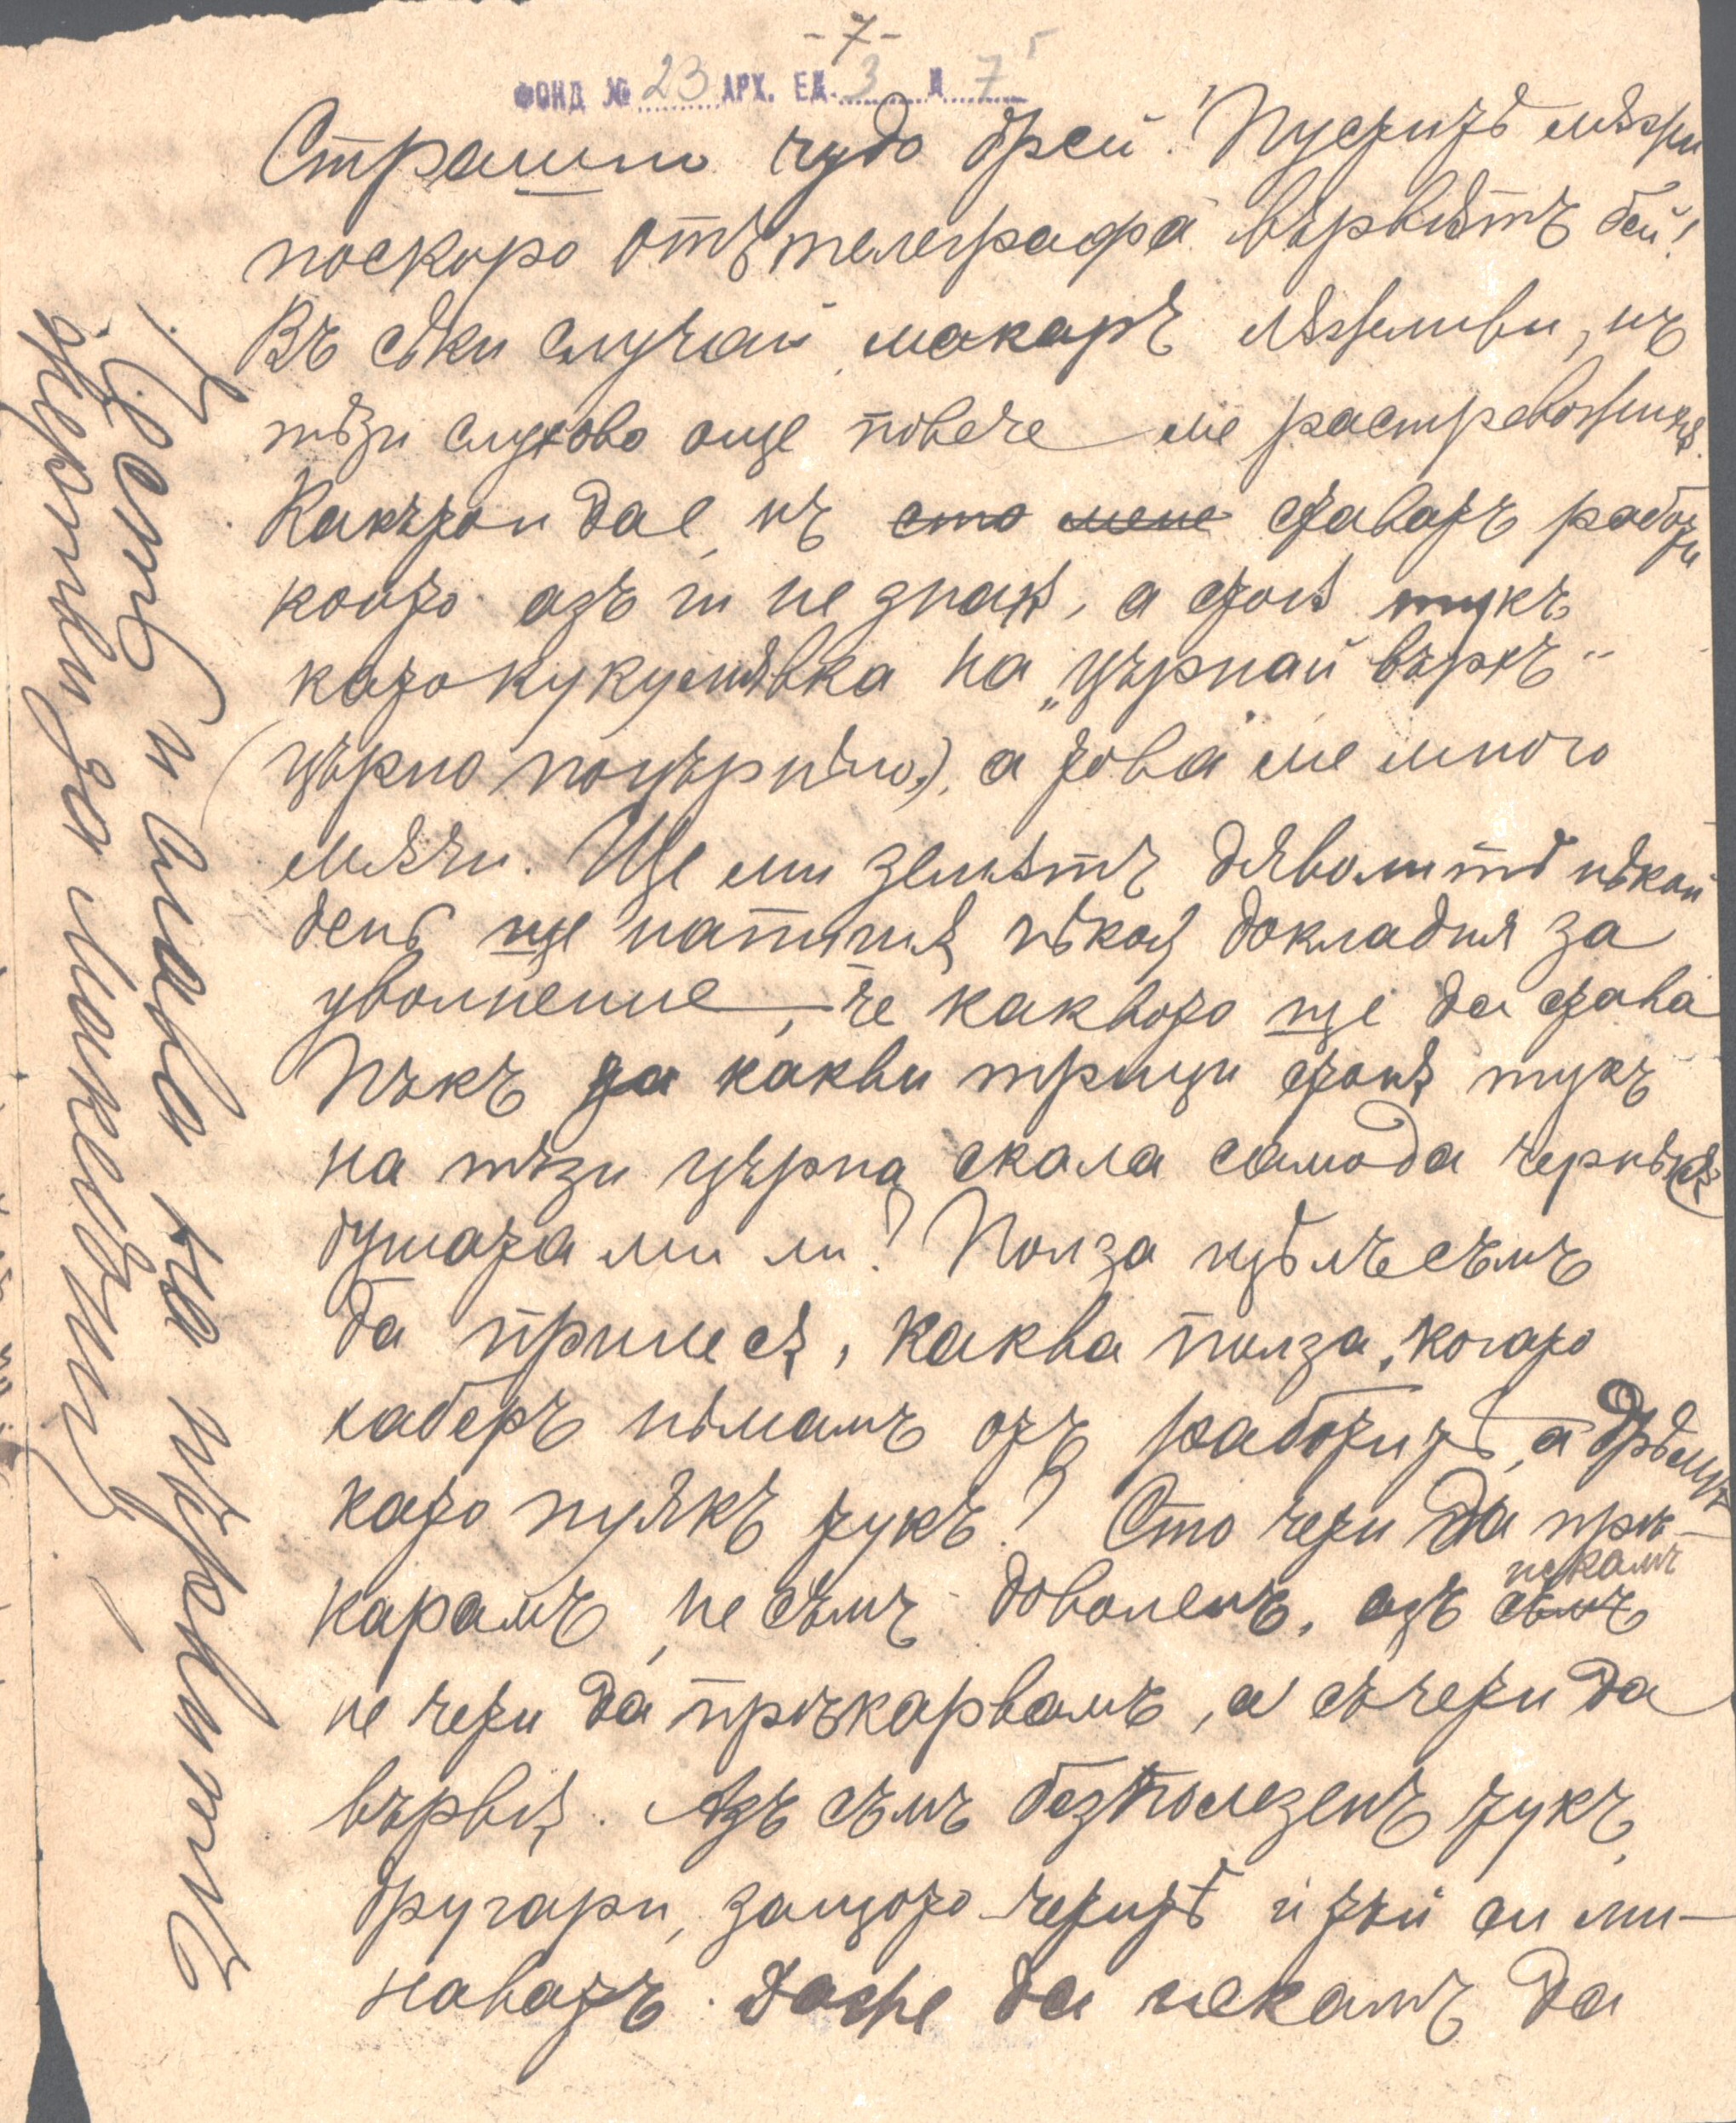 -7-
ФОНД № 23 АРХ. ЕД. 3 Л 7
Страшно чудо брей! Пуститѣ лѫжи
поскоро отъ телеграфа вървѭтъ бей!
Въ сѣки случай, макаръ лѫжливи, нъ
тѣзи слухово още повече ме растревожихѫ.
Какъто и да е, нъ сто мене ставатъ работи
които азъ ги не знаѭ, а стоѭ тукъ
като кукумявка на „църнай връхъ"
(църно почърнѣло), а това ме много
мѫчи. Ще ми земѫтъ дяволитѣ нѣкой
день ще натиснѫ нѣкоѭ докладня за
уволнение, че каквото ще да става
Пъкъ за какви трици стоѭ тукъ
на тѣзи църна скала само да чернѣѭ
душата ми ли? Полза цѣлъ съмъ
да принесѫ, каква полза, когато
хаберъ нѣмамъ отъ работитѣ, а дрѣмѭ
като пуякъ тукъ? Сто чети да прѣ-
карамъ, не съмъ доволенъ, азъ съмъ искамъ
не чети да прѣкарвамъ, а съ чети да
вървѭ. Азъ съмъ безполезенъ тукъ,
другари, защото четитѣ и тъй си ми-
наватъ. Даже да искамъ да
Честь и слава на църквитѣ